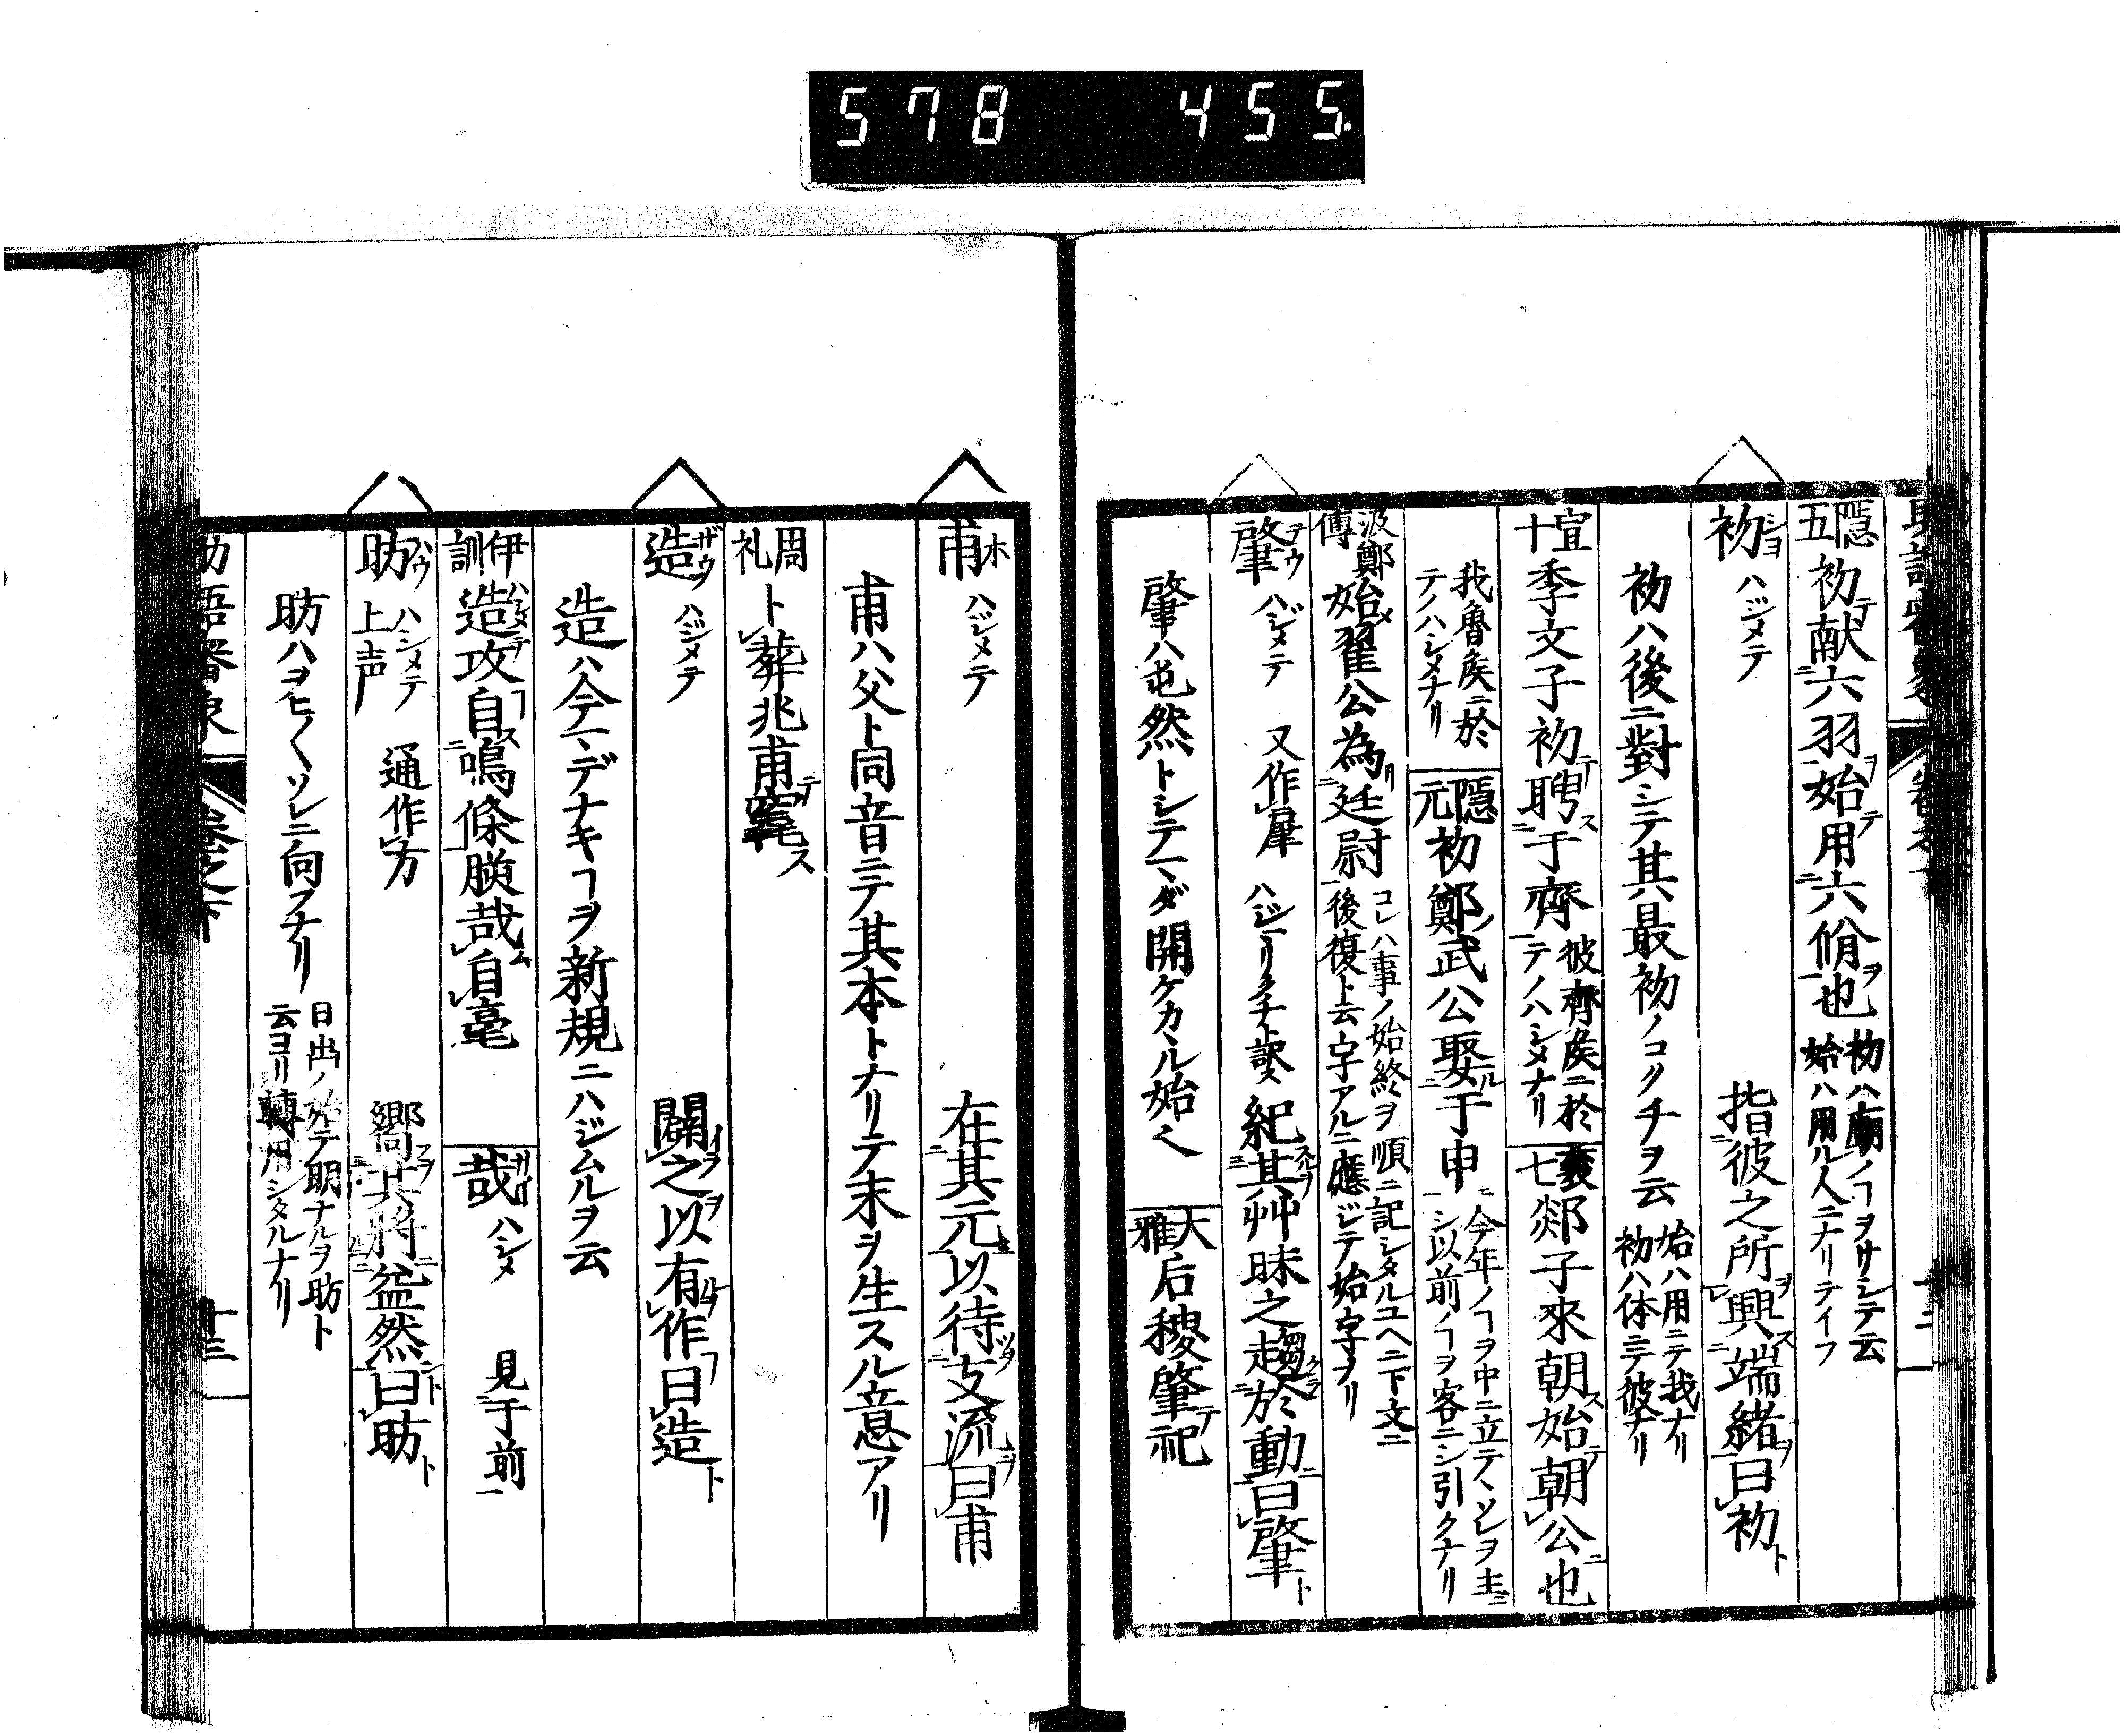 578 455.
隠五 初テ献六羽ヲ始テ用六佾ヲ也 初ハ廟ノヿヲサシテ云 始ハ用ル人ニナリテイフ
初 シヨ ハジメテ 指彼之所ヲ興ス端緒ヲ曰初ト
初ハ後ニ對シテ其最初ノコグチヲ云 始ハ用ニテ我ナリ 初ハ体ニテ彼ナリ
宣十 季文子初テ聘ス于齊 彼齊侯ニ於テノハシメナリ 襄七 郯子來朝ス始テ朝公ニ也
我魯侯ニ於テノハシメナリ 隠元 初鄭ノ武公娶ル于申 今年ノヿヲ中ニ立テヽソレヲ主ニシ以前ノヿヲ客ニシ引クナリ
汲鄭傳 始メ翟公為リ廷尉 コレハ事ノ始終ヲ順ニ記シタルユヘニ下文ニ後復ト云字アルニ應ジテ始字ヲリ
肇 テウ ハジメテ 又作肈 ハジマリクチト訳ス 紀スルヲ其艸昧之趨クヲ於動ニ曰肇ト
肇ハ屯然トシテマダ開ケカヽル始ヘ 大雅 后稷肇テ祀
甫 ホ ハジメテ 在其元ニ以待ツヲ支流ヲ曰甫
甫ハ父ト同音ニテ其本トナリテ末ヲ生スル意アリ
周礼 卜葬兆甫テ竁ス
造 ザウ ハジメテ 闢イラ之ヲ以有ルヲ作フ曰造ト
造ハ今マデナキヿヲ新規ニハジムルヲ云
伊訓 造ハシメテ攻フス自鳴條朕哉ム自亳 哉 サイ ハシメ 見于前
昉 ハウ ハシメテ 上声 通作方 嚮スヲ其將ニ盆然ニト曰昉ト
昉ハヲヒ〱ソレニ向フナリ 日出ノ始テ明ナルヲ昉ト云ヨリ轉用シタルナリ
助語審象 巻之下 十三